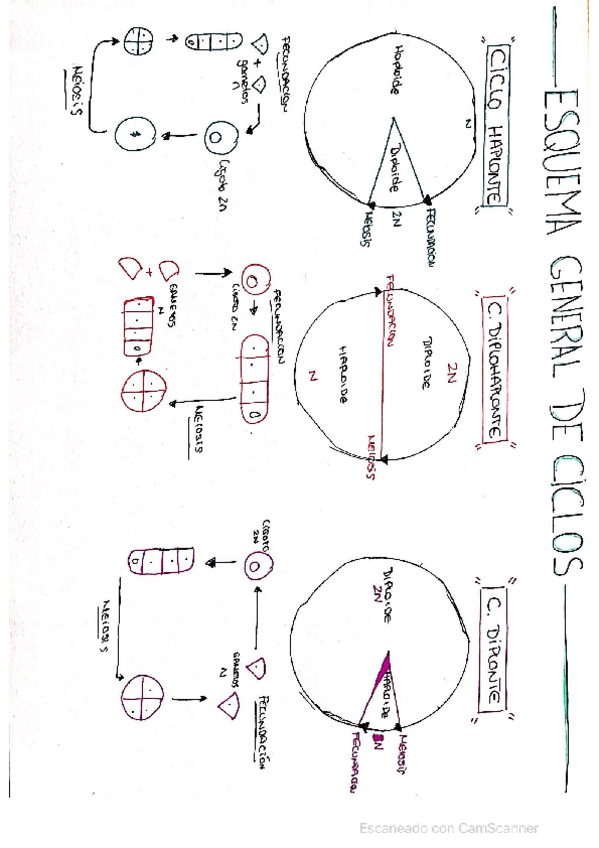 ESQUEMA GENERAL DE CICLOS
"CICLO HAPLONTE"
Haploide
N
Diploide
2N
FECUNDACION
MEIOSIS
FECUNDACION
gametos
n
+
Cigoto 2n
MEIOSIS
"C. DIPLOHAPLONTE"
2N
DIPLOIDE
FECUNDACION
MEIOSIS
HAPLOIDE
N
FECUNDACION
CIGOTO 2N
GAMETOS
N
+
MEIOSIS
"C. DIPLONTE"
DIPLOIDE
2N
HAPLOIDE
MEIOSIS
N
FECUNDACION
CIGOTO
2N
GAMETOS
N
FECUNDACIÓN
MEIOSIS
Escaneado con CamScanner